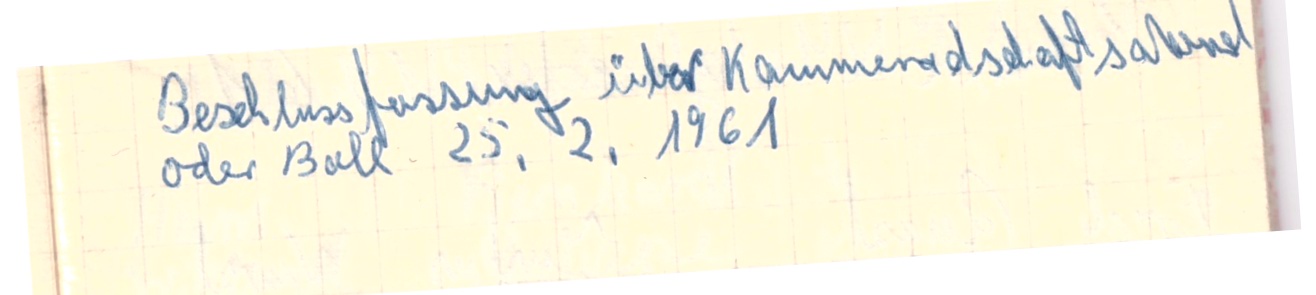 Beschlussfassung über Kammeradschaftsabend
oder Ball 25, 2, 1961